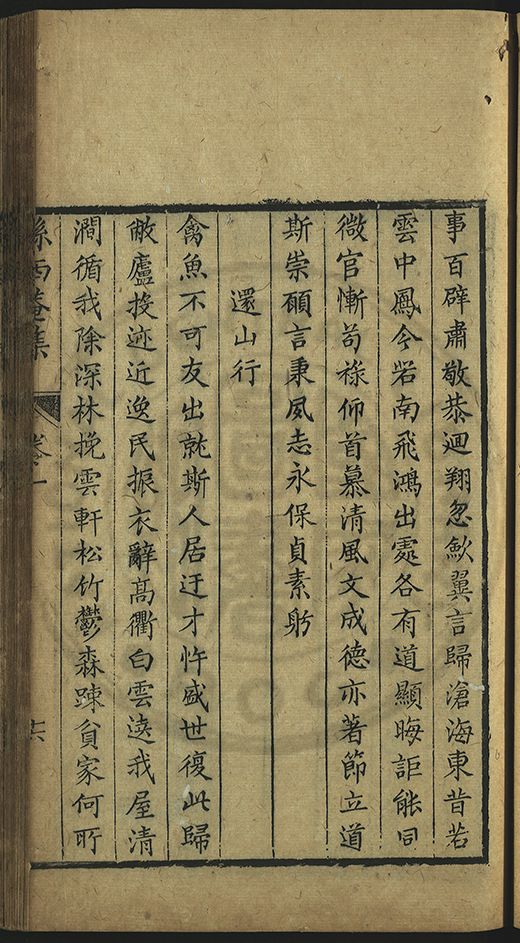 事百辟肅敬恭迴翔忽歛翼言歸滄海東昔若
雲中鳳今若南飛鴻出處各有道顯晦詎能同
微官慚苟祿仰首慕清風文成德亦著節立道
斯崇願言秉夙志永保貞素躬
還山行
禽魚不可友出就斯人居迂才忤盛世復此歸
敝廬投迹近逸民振衣辭高衢白雲遶我屋清
澗循我除深林挽雲軒松竹鬱森踈貧家何所
孫西菴集
卷一